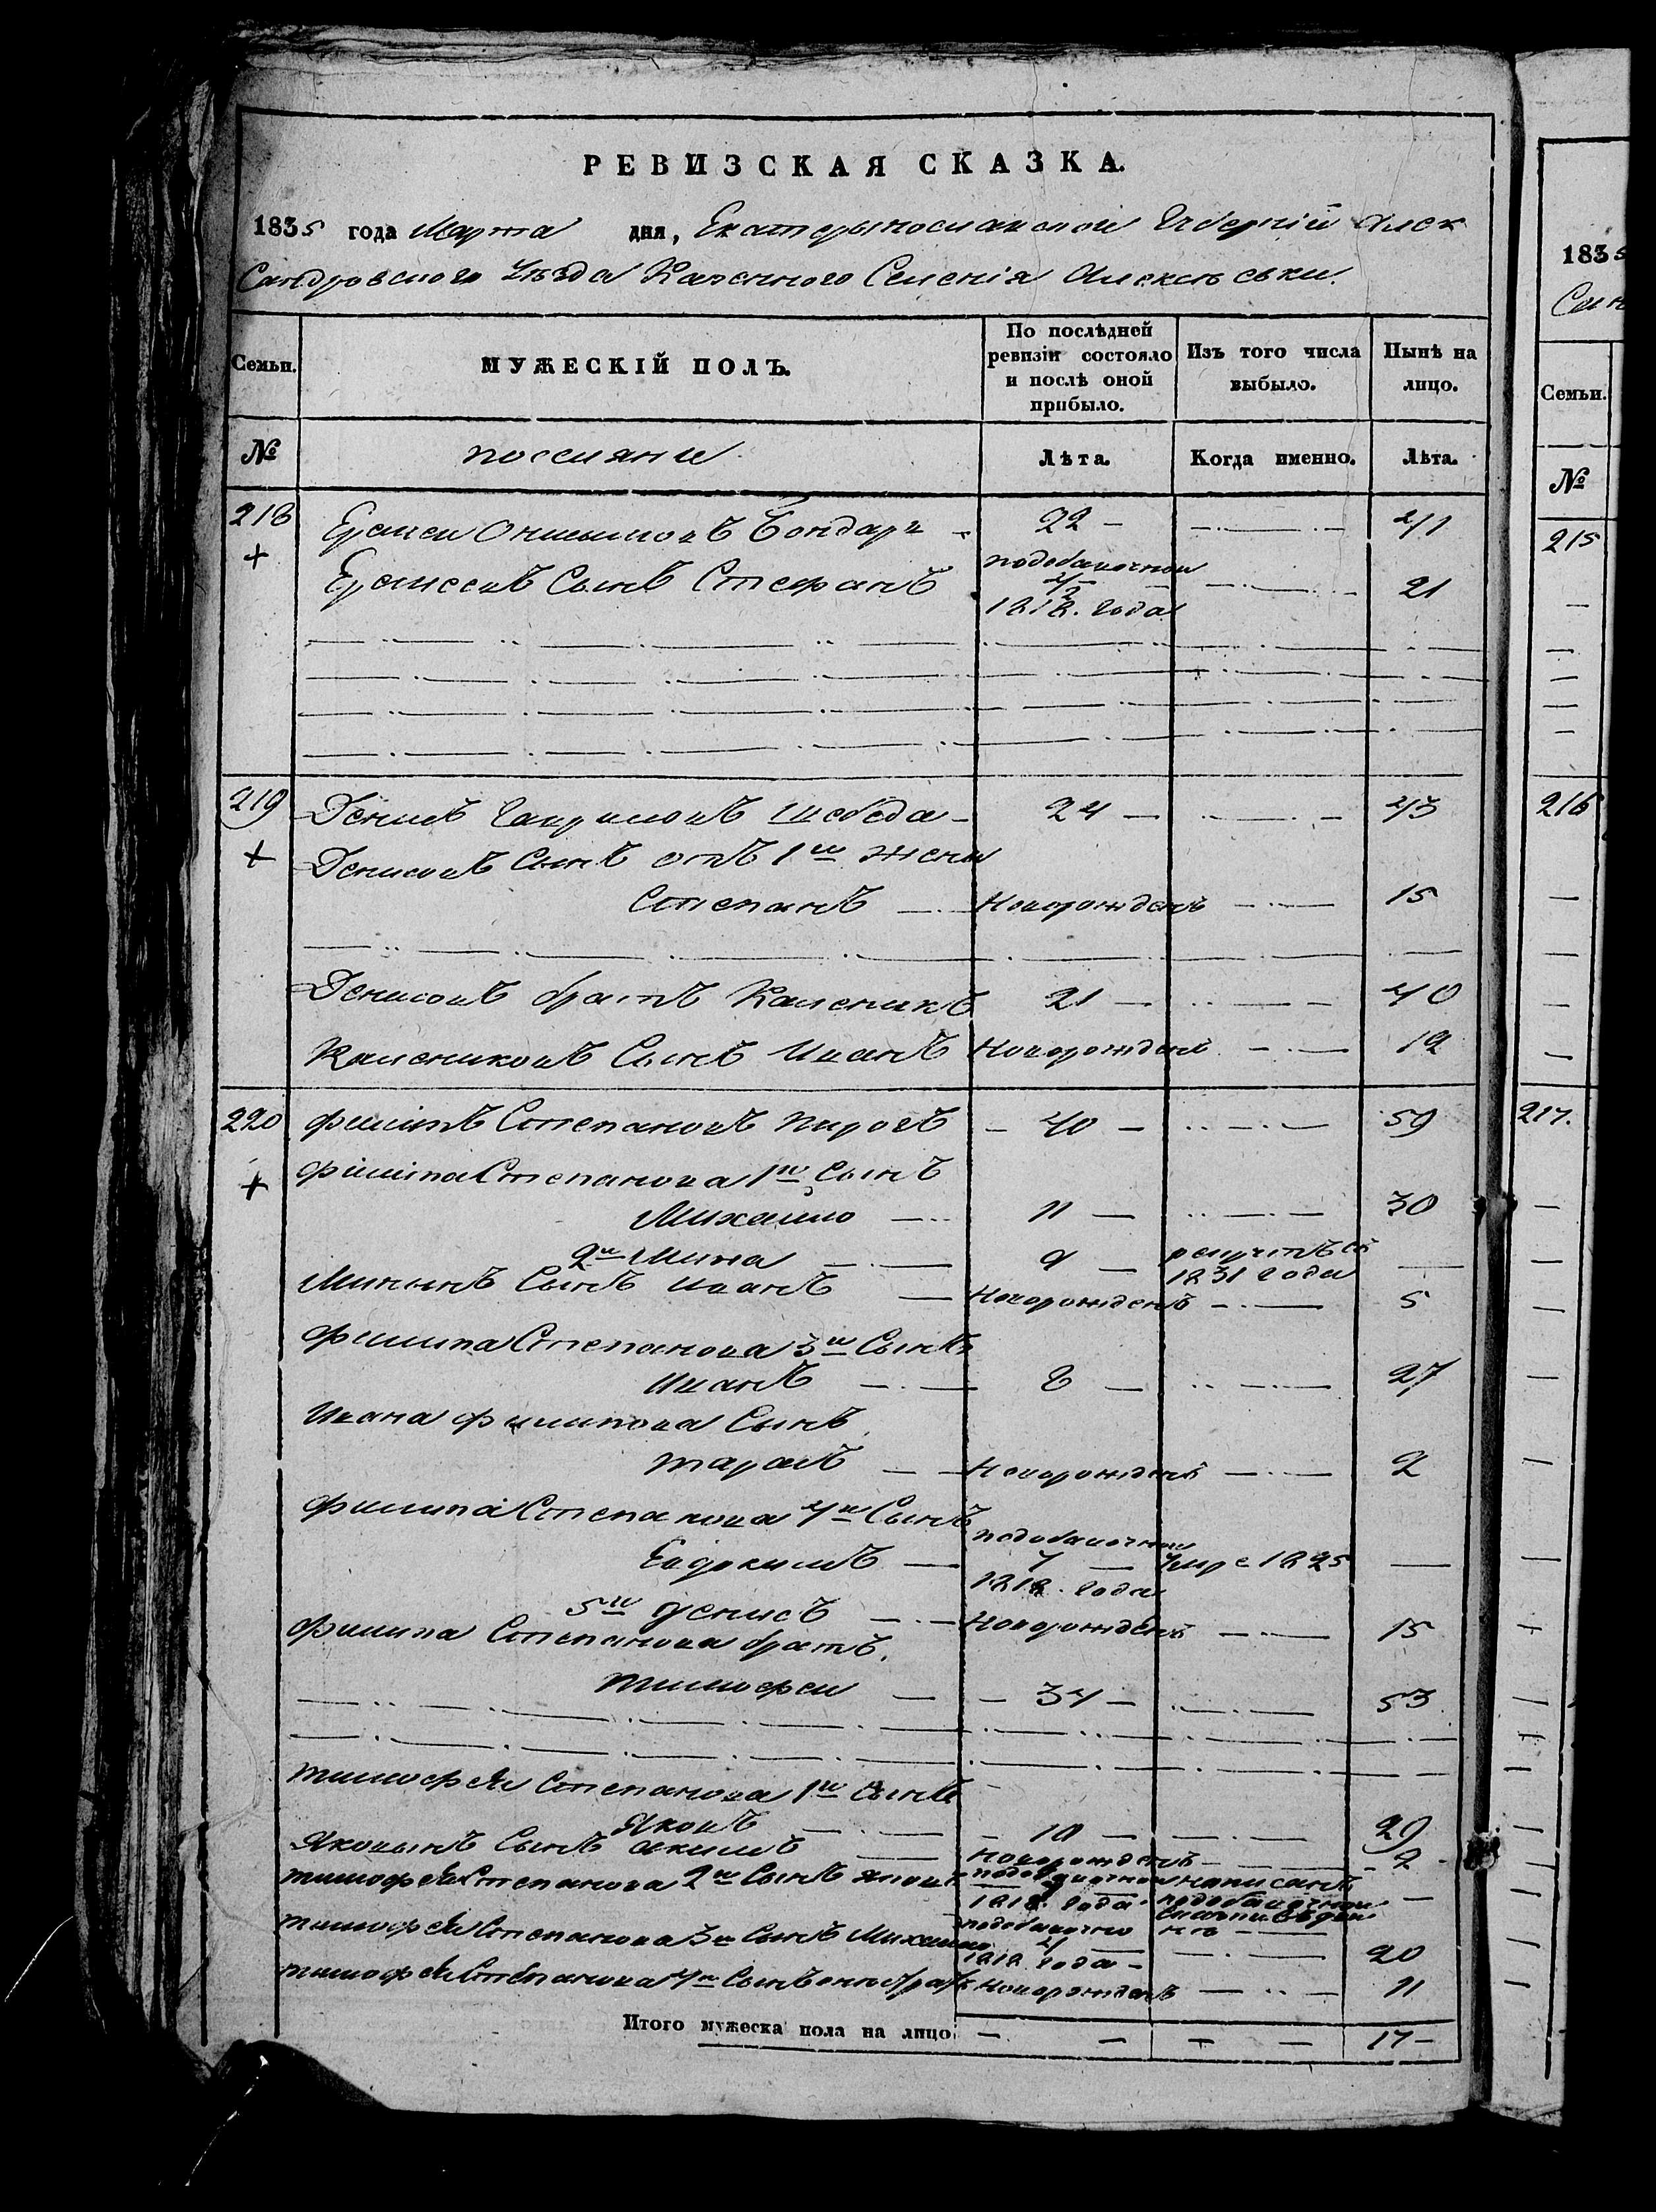 РЕВИЗСКАЯ СКАЗКА.
1835 года Марта дня, Екатерынославской Губерніи Алек
Сандровского Уѣзда Казенного Селенія Алексѣевки.
Семьи.
МУЖЕСКІЙ ПОЛЪ.
По послѣдней ревизіи состояло и послѣ оной прибыло.
Изъ того числа выбыло.
Нынѣ на лицо.
№
поселяне
Лѣта.
Когда именно.
Лѣта.
218 Онисимовъ Бондарь 22 — 41
сынъ Стефанъ подобавочной 2 1818. года 21
219 Денисъ Гавриловъ Шведа 24 — 43
Денисовъ Сынъ отъ 1й жены
Степанъ Новорожденъ 15
Денисовъ братъ Каленикъ 21 — 40
Калениковъ Сынъ Иванъ Новорожденъ 12
220 Филипъ Степановъ Пирогъ 40 — 59
Филипа Степанова 1й Сынъ
Михайло 11 — 30
2й Мина 9 — рекрутъ съ 1831 года
Мининъ Сынъ Иванъ Новорожденъ 5
Филипа Степанова 3й Сынъ
Иванъ 8 — 27
Ивана Филипова Сынъ
Тарасъ Новорожденъ 2
Филипа Степанова 4й Сынъ
Евдокимъ подобавочной 7 1818. года Умре 1825
5й Денисъ Новорожденъ 15
Филипа Степанова братъ.
Тимофей 34 — 53
Тимофея Степанова 1й Сынъ
Яковъ 10 — 29
Яковынъ Сынъ Акимъ Новорожденъ 2
Тимофея Степанова 2й Сынъ подобавочной 1818. года написанъ подобавочной
Тимофея Степанова 3й Сынъ Михайло подобавочно 4 1818 года 20
Тимофея Степанова 4й Сынъ Новорожденъ 11
Итого мужеска пола на лицо — — — — 17 —
1835
Семьи.
№
215
216
217.